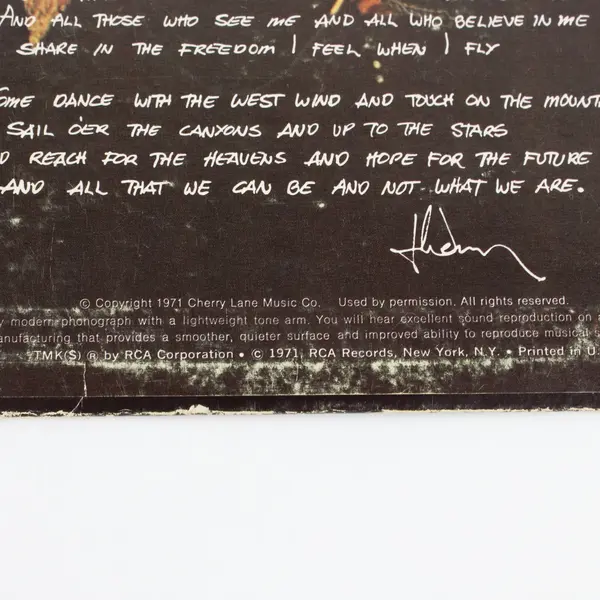 AND ALL THOSE WHO SEE ME AND ALL WHO BELIEVE IN ME
SHARE IN THE FREEDOM I FEEL WHEN I FLY
OME DANCE WITH THE WEST WIND AND TOUCH ON THE MOUNT
SAIL O'ER THE CANYONS AND UP TO THE STARS
D REACH FOR THE HEAVENS AND HOPE FOR THE FUTURE
AND ALL THAT WE CAN BE AND NOT WHAT WE ARE.
© Copyright 1971 Cherry Lane Music Co. Used by permission. All rights reserved.
y modern phonograph with a lightweight tone arm. You will hear excellent sound reproduction on
anufacturing that provides a smoother, quieter surface and improved ability to reproduce musical s
TMK(S) ® by RCA Corporation • © 1971, RCA Records, New York, N.Y. • Printed in U.